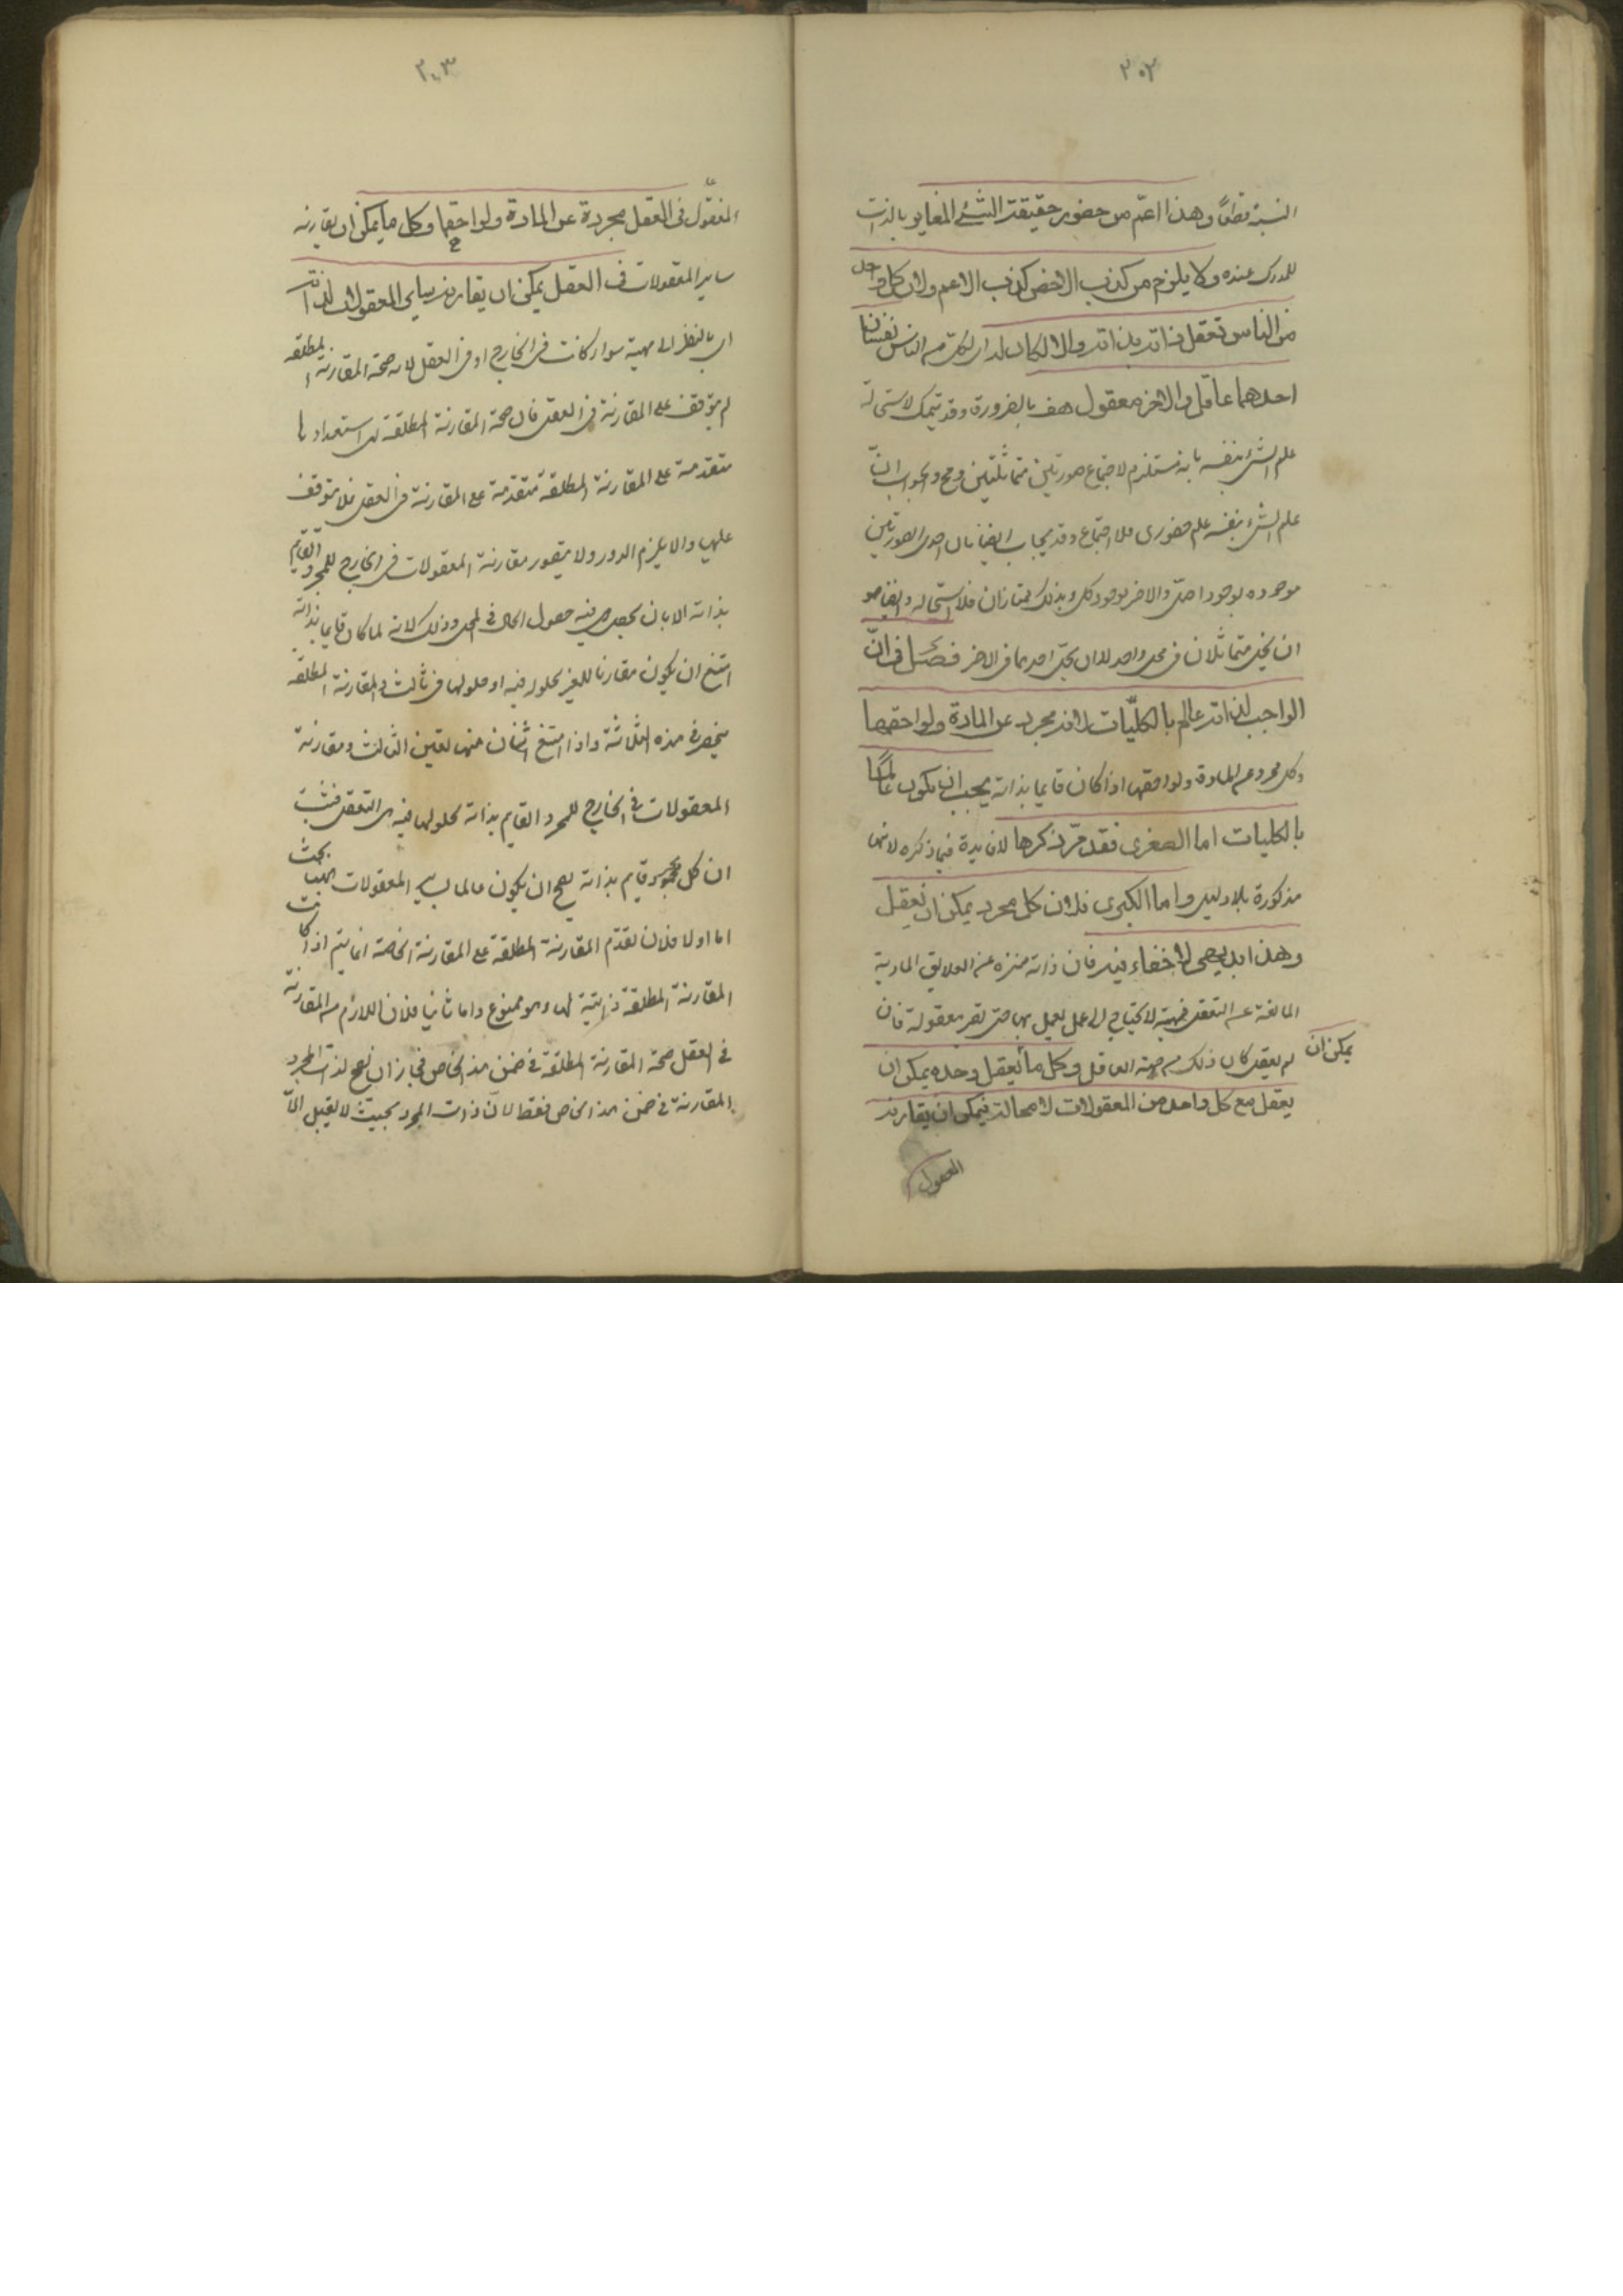 ٣٠٢
النسبة قطعًا وهذا اعمّ من حضور حقيقة الشئ المغاير بالذات
للمدرك عنده ولا يلزم من كذب الاخص كذب الاعم ولان كل واحد
من الناس تعقل ذاته بذاته والا لكان له اى لكل من الناس نفسان
احدهما عاقل والاخر معقول هف بالضرورة وقد يتمسك لاستحالة
علم الشئ بنفسه بانه مستلزم لاجتماع صورتين متماثلتين وهو مح والجواب ان
علم الشئ بنفسه علم حضورى فلا اجتماع وقد يجاب ايضا بان احدى الصورتين
موجوده بوجود اصلى والاخر بوجود ظلى وبذلك يمتازان فلا استحاله وايضا هو
ان يحل متماثلان فى محل واحد لا ان يحل احدهما فى الاخر فصل فى انّ
الواجب لذاته عالم بالكليّات لانه مجرد عن المادة ولواحقها
وكل مجرد عن المادة ولواحقها اذا كان قايما بذاته يجب ان يكون عالمًا
بالكليات اما الصغرى فقد مرّ ذكرها لا فايدة فيما ذكره لانها
مذكورة بلا دليل واما الكبرى فلان كل مجرد يمكن ان يعقل
وهذا بديهى لا خفاء فيه فان ذاته منزه عن العلايق المادية
المانعة عن التعقل فمهيته لا تحتاج الى عمل يعمل بها حتى تصير معقولة فان
لم يعقل كان ذلك من جهة العاقل وكل ما يعقل وحده يمكن ان
يمكن ان
يعقل مع كل واحد من المعقولات لا محالة فيمكن ان يقارنه
المعقول
٣٠٣
المعقول فى العقل مجردة عن المادة ولواحقها وكل ما يمكن ان يقارنه
ساير المعقولات فى العقل يمكن ان يقارنه ساير المعقولات لذاته
اى بالنظر الى مهيته سواء كانت فى الخارج او فى العقل لان صحة المقارنة المطلقة
لم يتوقف على المقارنة فى العقل فان صحة المقارنة المطلقة اى استعدادها
متقدمة على المقارنة المطلقة متقدمة على المقارنة فى العقل فلا يتوقف
عليها والا يلزم الدور ولا يتصور مقارنة المعقولات فى الخارج للمجرد القايم
بذاته الا بان يحصل فيه حصول الحال فى المحل وذلك لانه لما كان قايما بذاته
امتنع ان يكون مقارنا للغير بحلوله فيه او حلولها فى ثالث والمقارنة المطلقة
ينحصر فى هذه الثلاثة واذا امتنع اثنان منها تعين الثالث ومقارنة
المعقولات فى الخارج للمجرد القايم بذاته بحلولها فيه هى التعقل فثبت
ان كل مجرد قايم بذاته يصح ان يكون عالما بساير المعقولات ههنا بحث
اما اولا فلان تقدم المقارنة المطلقة على المقارنة الخاصة انما يتم اذا كانت
المقارنة المطلقة ذاتية لها وهو ممنوع واما ثانيا فلان اللازم من المقارنة
فى العقل صحة المقارنة المطلقة فى ضمن هذا الخاص فجاز ان يصح لذات المجرد
المقارنة فى ضمن هذا الخاص فقط لان ذات المجرد بحيث لا يقبل الّا